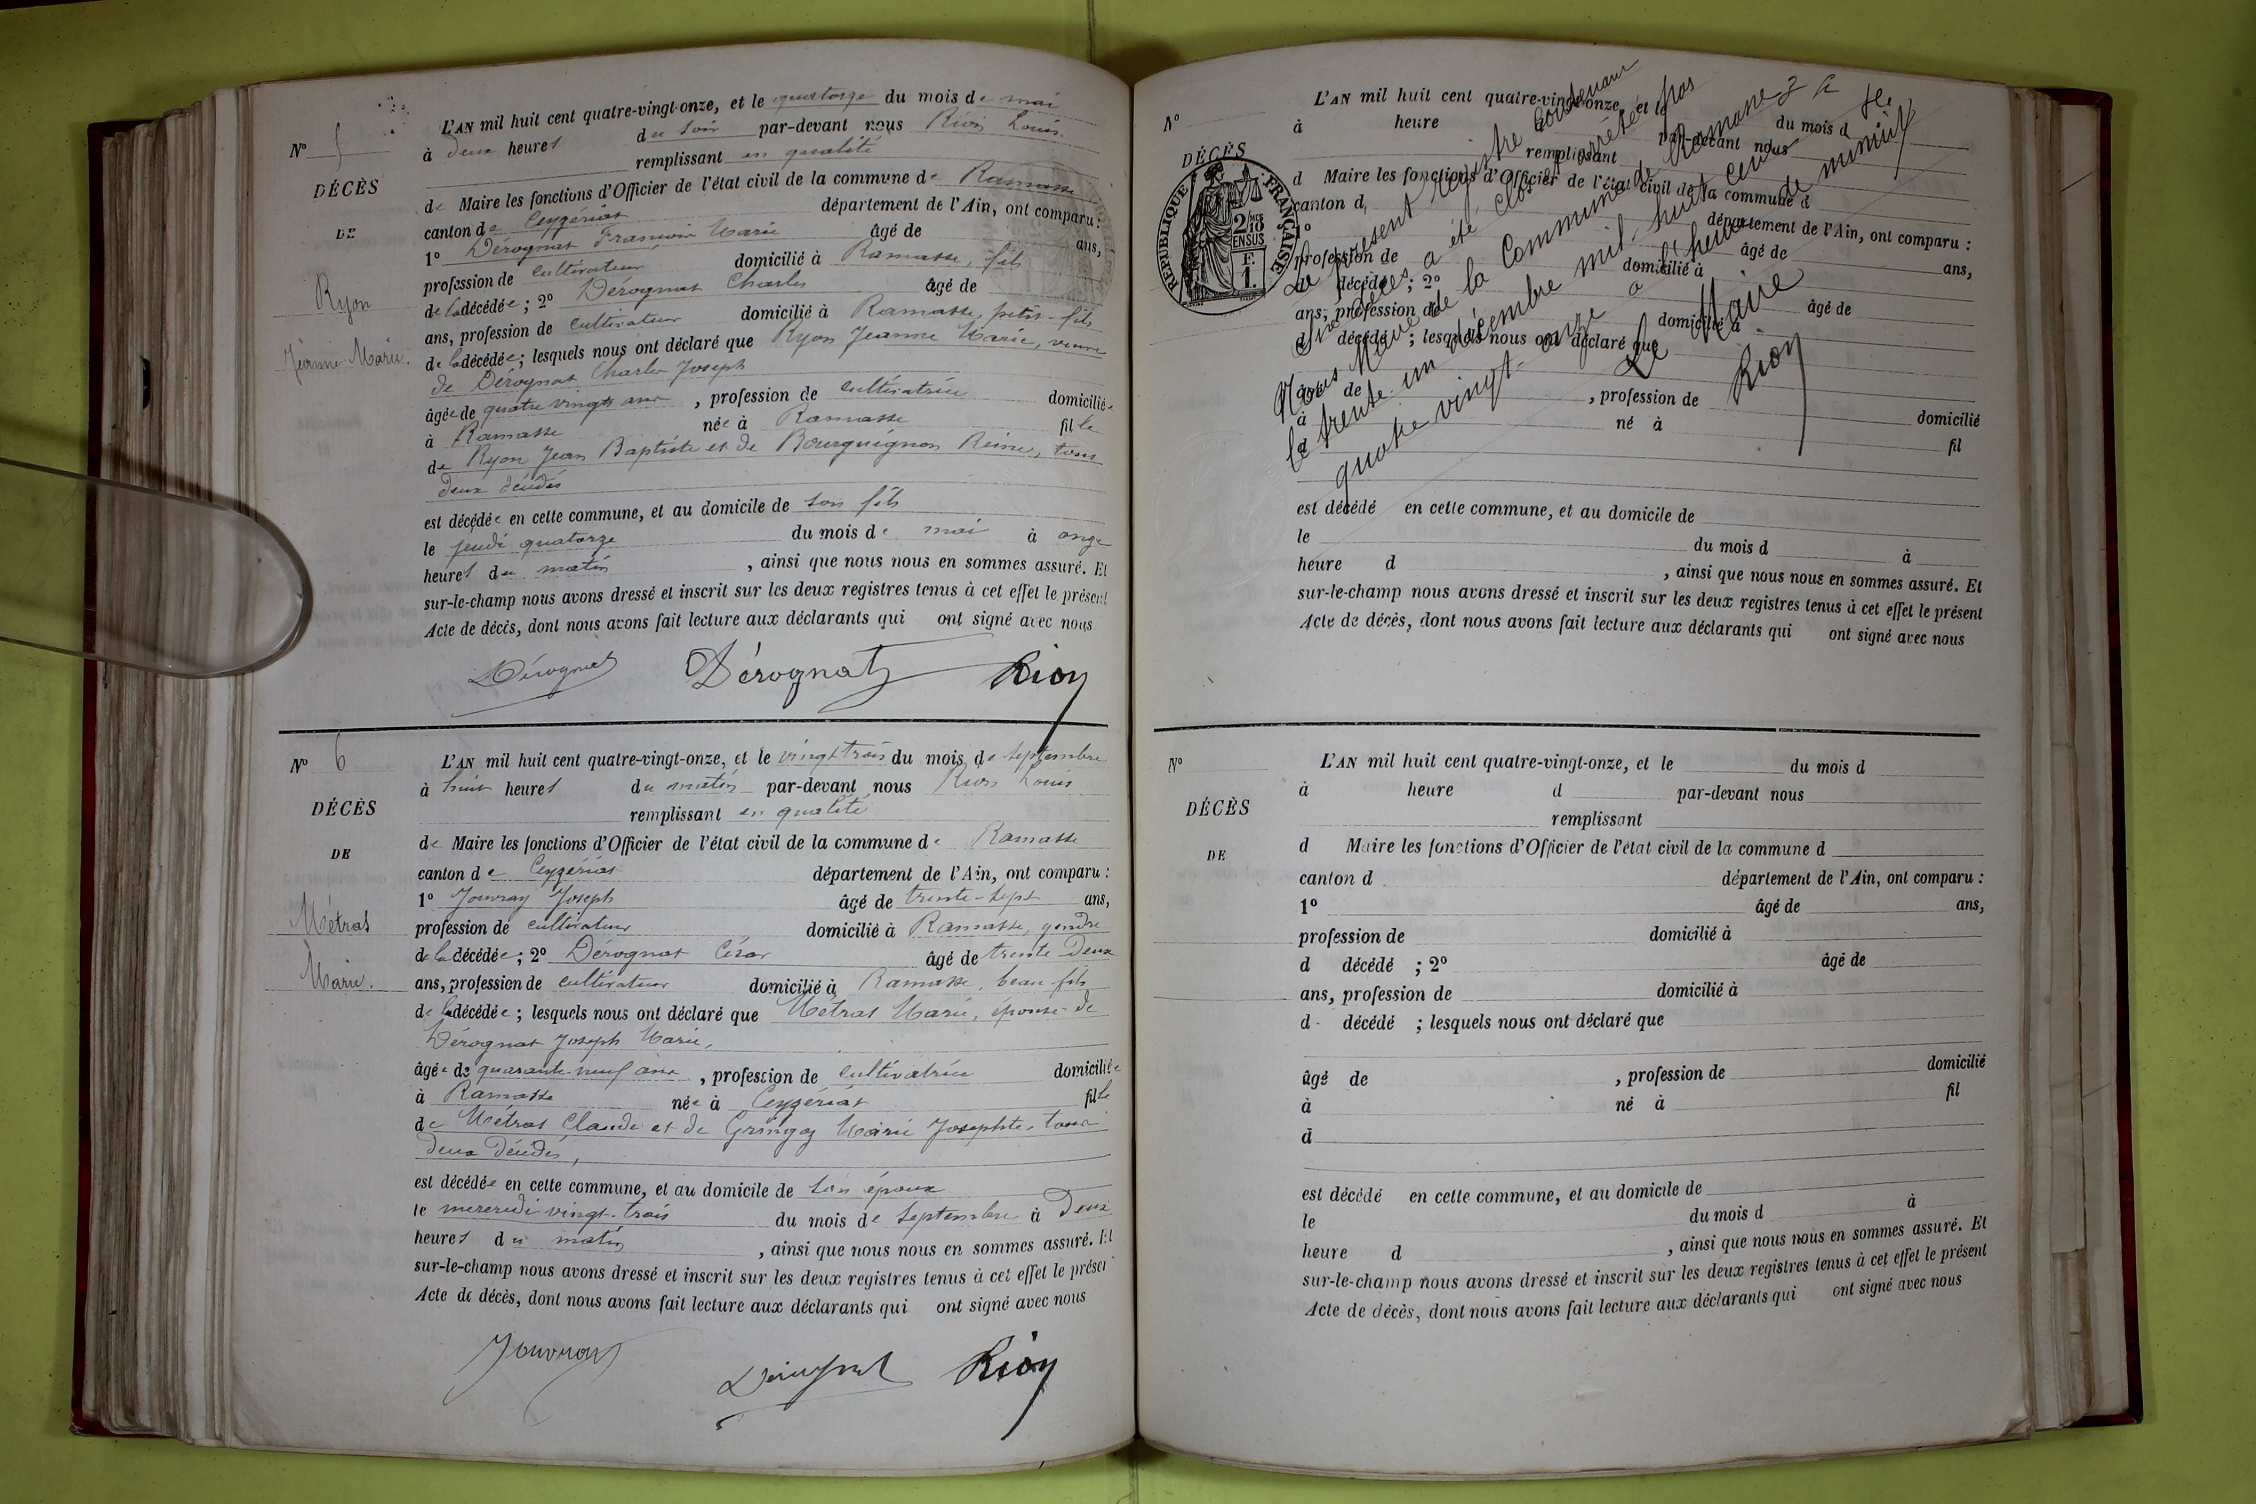 N° 5
DÉCÈS
DE
Ryon
Jeanne Marie.
L'AN mil huit cent quatre-vingt-onze, et le quatorze du mois de mai
à deux heures du soir par-devant nous Rion Louis
remplissant en qualité
de Maire les fonctions d'Officier de l'état civil de la commune de Ramasse
canton de Ceyzériat département de l'Ain, ont comparu :
1° Dérognat François Marie âgé de ans,
profession de cultivateur domicilié à Ramasse, fils
de la décédée ; 2° Dérognat Charles âgé de
ans, profession de cultivateur domicilié à Ramasse, petit-fils
de la décédée ; lesquels nous ont déclaré que Ryon Jeanne Marie, veuve
de Dérognat Charles Joseph
âgée de quatre vingts ans , profession de cultivatrice domiciliée
à Ramasse née à Ramasse fille
de Ryon Jean Baptiste et de Bourguignon Reine, tous
deux décédés
est décédée en cette commune, et au domicile de son fils
le jeudi quatorze du mois de mai à onze
heures du matin , ainsi que nous nous en sommes assuré. Et
sur-le-champ nous avons dressé et inscrit sur les deux registres tenus à cet effet le présent
Acte de décès, dont nous avons fait lecture aux déclarants qui ont signé avec nous
Dérognat Dérognat Rion
N° 6
DÉCÈS
DE
Métras
Marie.
L'AN mil huit cent quatre-vingt-onze, et le vingt trois du mois de septembre
à huit heures du matin par-devant nous Rion Louis
remplissant en qualité
de Maire les fonctions d'Officier de l'état civil de la commune de Ramasse
canton de Ceyzériat département de l'Ain, ont comparu :
1° Jouvray Joseph âgé de trente-sept ans,
profession de cultivateur domicilié à Ramasse, gendre
de la décédée ; 2° Dérognat César âgé de trente deux
ans, profession de cultivateur domicilié à Ramasse, beau-fils
de la décédée ; lesquels nous ont déclaré que Métras Marie, épouse de
Dérognat Joseph Marie,
âgée de quarante-neuf ans , profession de cultivatrice domiciliée
à Ramasse née à Ceyzériat fille
de Métras Claude et de Gringoz Marie Josephte, tous
deux décédés,
est décédée en cette commune, et au domicile de son époux
le mercredi vingt-trois du mois de septembre à deux
heures du matin , ainsi que nous nous en sommes assuré. Et
sur-le-champ nous avons dressé et inscrit sur les deux registres tenus à cet effet le présent
Acte de décès, dont nous avons fait lecture aux déclarants qui ont signé avec nous
Jouvray Dérognat Rion
N°
DÉCÈS
RÉPUBLIQUE FRANÇAISE
2/10 EN SUS
F.
1.
L'AN mil huit cent quatre-vingt-onze, et le du mois d
à heure d par-devant nous
remplissant
d Maire les fonctions d'Officier de l'état civil de la commune d
canton d département de l'Ain, ont comparu :
1° âgé de ans,
profession de domicilié à
d décédé ; 2° âgé de
ans, profession de domicilié à
d décédé ; lesquels nous ont déclaré que
âgé de , profession de domicilié
à né à fil
d
est décédé en cette commune, et au domicile de
le du mois d à
heure d , ainsi que nous nous en sommes assuré. Et
sur-le-champ nous avons dressé et inscrit sur les deux registres tenus à cet effet le présent
Acte de décès, dont nous avons fait lecture aux déclarants qui ont signé avec nous
Le présent registre contenant
six décès a été clos et arrêté par
Nous Maire de la Commune de Ramasse
le trente-un décembre mil huit cent
quatre vingt-onze à l'heure de minuit
Le Maire
Rion
N°
DÉCÈS
DE
L'AN mil huit cent quatre-vingt-onze, et le du mois d
à heure d par-devant nous
remplissant
d Maire les fonctions d'Officier de l'état civil de la commune d
canton d département de l'Ain, ont comparu :
1° âgé de ans,
profession de domicilié à
d décédé ; 2° âgé de
ans, profession de domicilié à
d décédé ; lesquels nous ont déclaré que
âgé de , profession de domicilié
à né à fil
d
est décédé en cette commune, et au domicile de
le du mois d à
heure d , ainsi que nous nous en sommes assuré. Et
sur-le-champ nous avons dressé et inscrit sur les deux registres tenus à cet effet le présent
Acte de décès, dont nous avons fait lecture aux déclarants qui ont signé avec nous